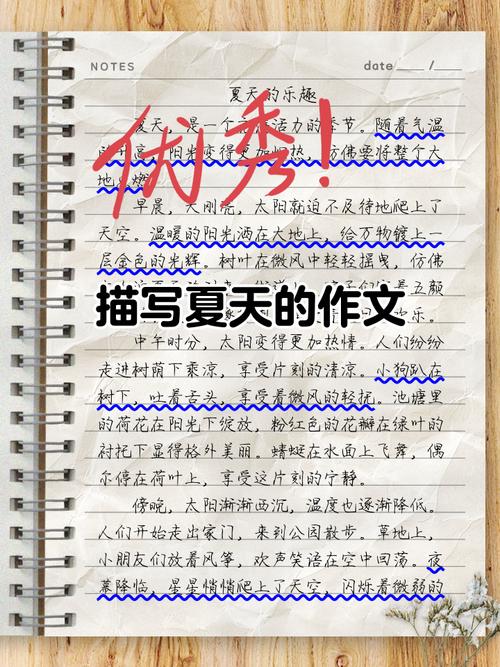 NOTES
date /
夏天的乐趣
优秀!
夏天,是一个 活力的季节。随着气温
高,阳光变得更加 热,仿佛要将整个大
地 燃
早晨,天刚亮,太阳就迫不及待地爬上了
天空。温暖的阳光洒在大地上,给万物镀上一
层金色的光辉。树叶在微风中轻轻摇曳,仿佛
着五颜
描写夏天的作文
乐。
中午时分,太阳变得更加热情。人们纷纷
走进树荫下乘凉,享受片刻的清凉。小狗趴在
树下,吐着舌头,享受着微风的轻抚。池塘里
的荷花在阳光下绽放,粉红色的花瓣在绿叶的
衬托下显得格外美丽。蜻蜓在水面上飞舞,偶
尔停在荷叶上,享受这片刻的宁静。
傍晚,太阳渐渐西沉,温度也逐渐降低。
人们开始走出家门,来到公园散步。草地上,
小朋友们放着风筝,欢声笑语在空中回荡。夜
幕降临,星星悄悄爬上了天空,闪烁着微弱的